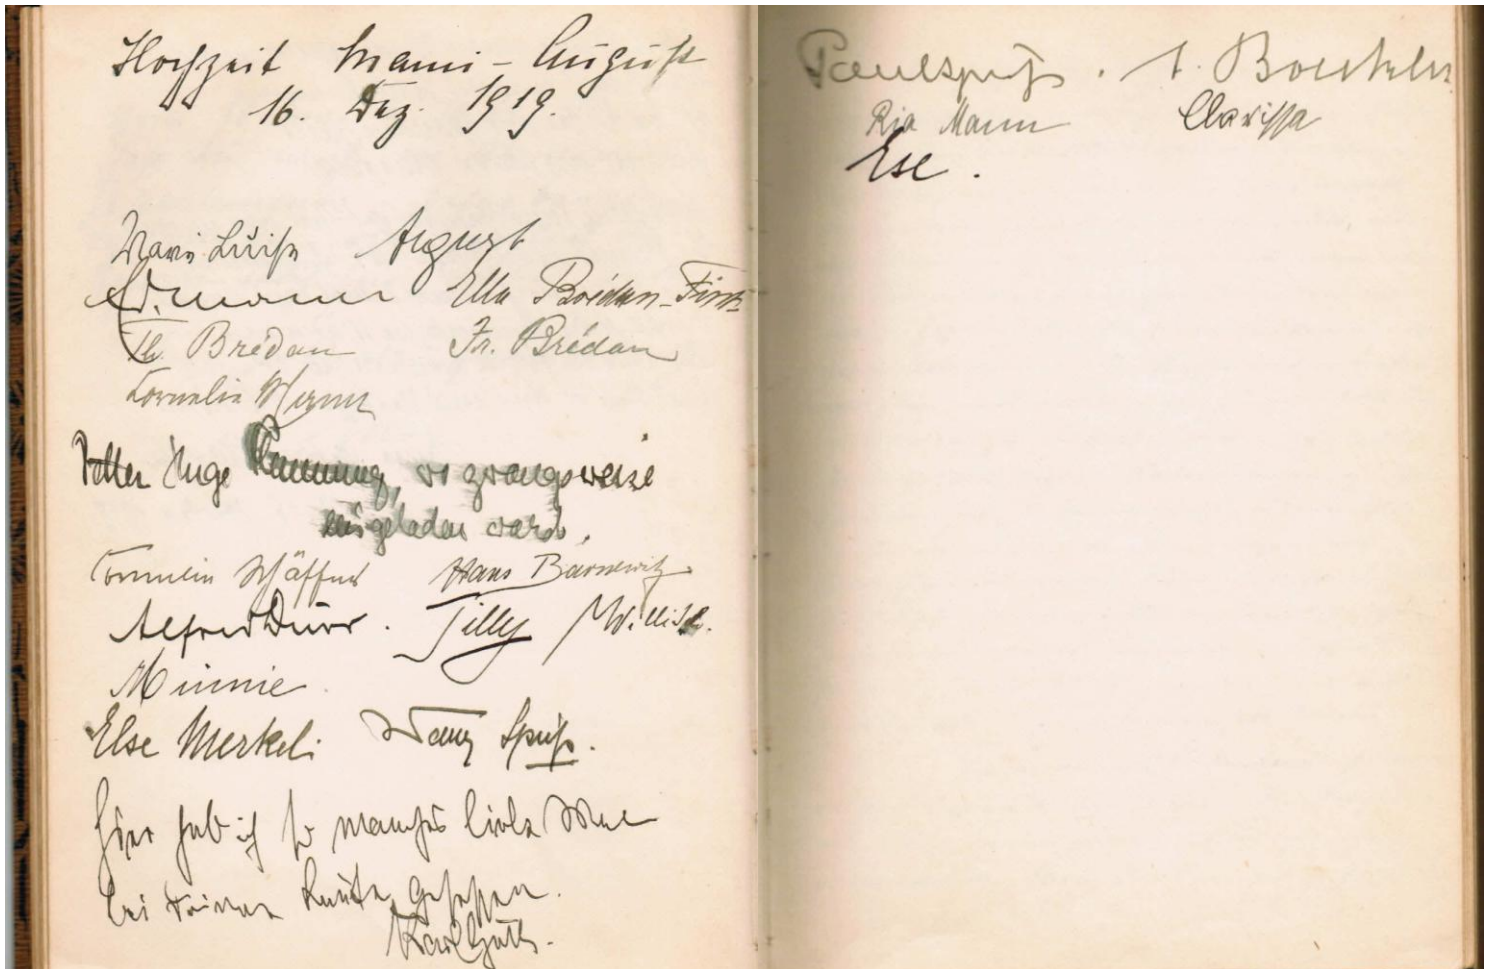 Hochzeit Mami - August
16. Dez. 1919.
Marie Luise August
Ed. Mann Ella Brédan-Fink
Th. Brédan Fr. Brédan
Cornelia Mann
Vetter Inge, so zwangsweise
ausgeladen ward.
Cornelia Schäffer Hans Barnewitz
Alfred Dürr. Tilly W. Millisch.
Minnie
Else Merkel. Spieß.
Hier hab ich so manches liebe Mal
bei deiner Laute gesessen.
Karl Guth.
Paul Spieß.
Ria Mann Clarissa
Ese.